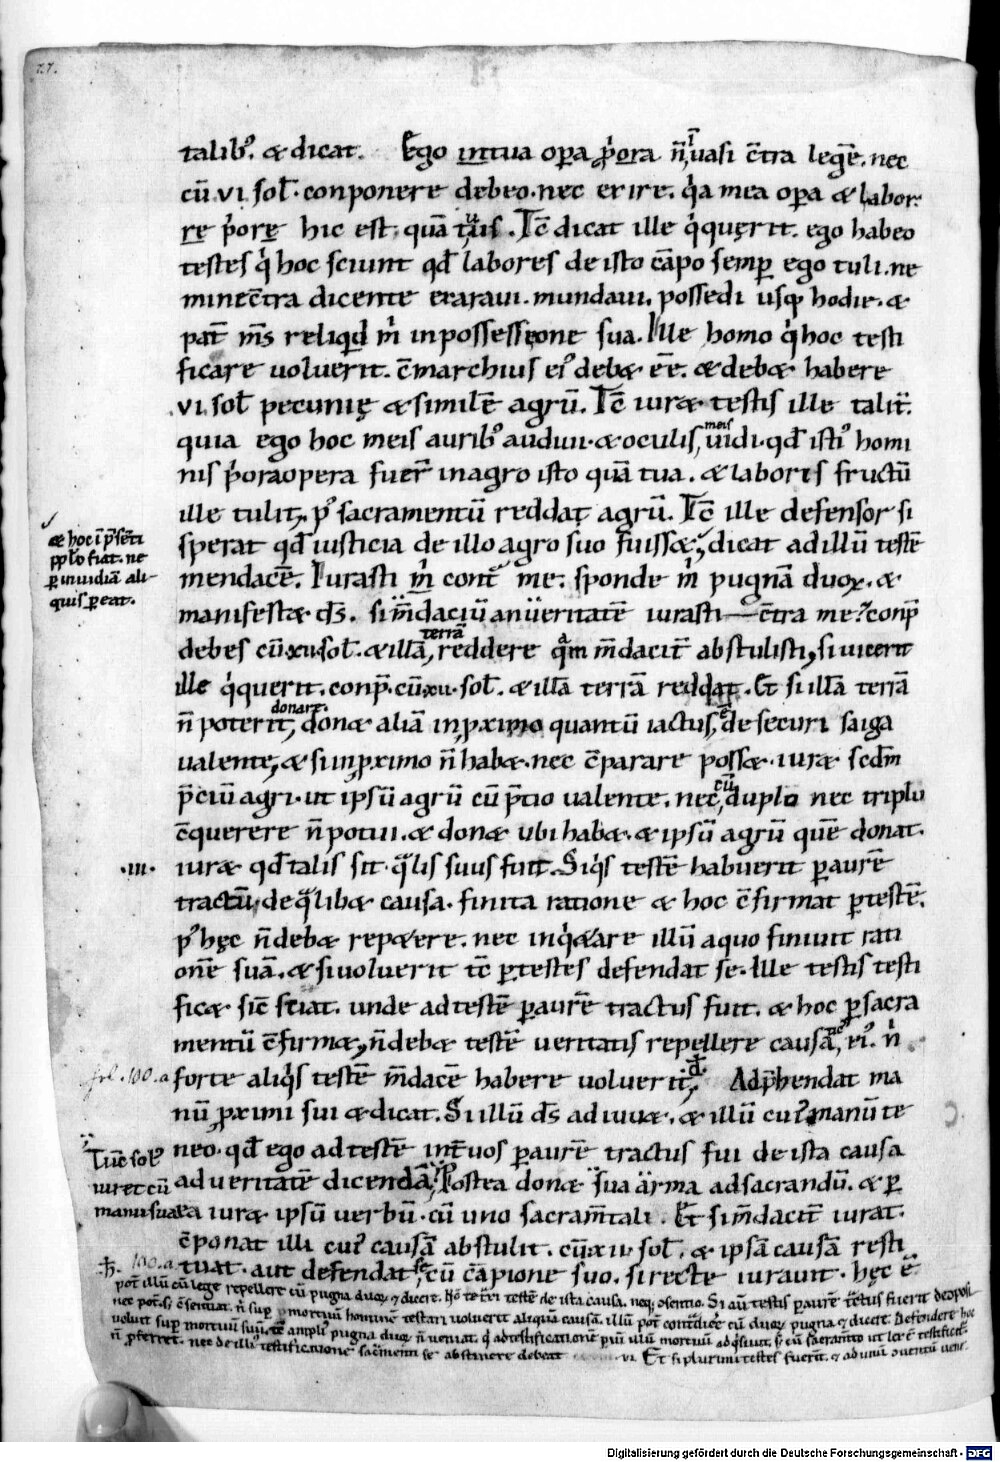 77.
talib9. & dicat. Ego in tua opa priora n inuasi ctra legē. nec
cū. vi. sol. conponere debeo. nec exire. qia mea opa & labor
rę priorę hic est. quā tuus. Tc dicat ille qi quęrit. ego habeo
testes qi hoc sciunt qd labores de isto cāpo semp ego tuli. ne
mine ctra dicente exaraui. mundaui. possedi usq hodie. &
pat ms reliqid mi in possessione sua. Ille homo qi hoc testi
ficare uoluerit. cmarchius ei9 debæ ee. & debæ habere
.vi. sol pecunię & similē agrū. Tc iuræ testis ille talit.
quia ego hoc meis aurib9 audiui. & oculis meis uidi. qd isti9 homi
nis priora opera fuer in agro isto quā tua. & laboris fructū
ille tulit. p9 sacramentū reddat agrū. Tc ille defensor si
sperat qd iusticia de illo agro suo fuissæ, dicat ad illū testē
mendacē. Iurasti mi cont me. sponde mi pugnā duox. &
manifestæ ds. si mdaciū an ueritatē iurasti ctra me. conp
debes cū xii. sol. & illā terrā reddere qam mdacit abstulisti, si uicerit
ille qi querit. conp. cū xii. sol. & illā terrā reddat. Et si illā terrā
n poterit donare, donæ aliā in pximo quantū iactus e de securi saiga
ualente, & si in pximo n habæ. nec cparare possæ. iuræ scdm
pciū agri. ut ipsū agrū cū ptio ualente. nec cū duplo nec triplu
cquerere n potui. & donæ ubi habæ. & ipsū agrū quē donat.
.iii.
iuræ qd talis sit. qalis suus fuit. Si qis testē habuerit p aurē
tractū. de qalibæ causa. finita ratione & hoc cfirmat p testē.
p9 hęc n debæ repetere. nec inqietare illū a quo finiuit rati
onē suā. & si uoluerit tc p testes defendat se. Ille testis testi
ficæ sic sciat. unde ad testē p aurē tractus fuit. & hoc p sacra
mentū cfirmæ, n debæ testē ueritatis repellere causa ei9. ni
forte aliqis testē mdacē habere uoluerit, Adphendat ma
nū pximi sui & dicat. Si illū ds adiuuæ. & illū cui9 manū te
neo. qd ego ad testē int uos p aurē tractus fui de ista causa
ad ueritatē dicendā, Postea donæ sua arma ad sacrandū. & p
ea iuræ ipsū uerbū. cū uno sacramtali. Et si mdacit iurat.
cponat illi cui9 causā abstulit. cū xii sol. & ipsā causā resti
tuat. aut defendat se cū cāpione suo. si recte iurauit. hęc ē
& hoc i psēti
pplo fiat. ne
p inuidiā ali
quis pereat.
fol. 100.a
Tūc sol9
iuret cū
manu sua
h. 100.a
pot illū cū lege repellere cū pugna duox & dicere.
nec pot
uoluit sup mortuū suū
n pferret. nec de illi testificatione sacmenti se abstinere debeat vi. Et si plurimi testes fuerit.
Digitalisierung gefördert durch die Deutsche Forschungsgemeinschaft - DFG